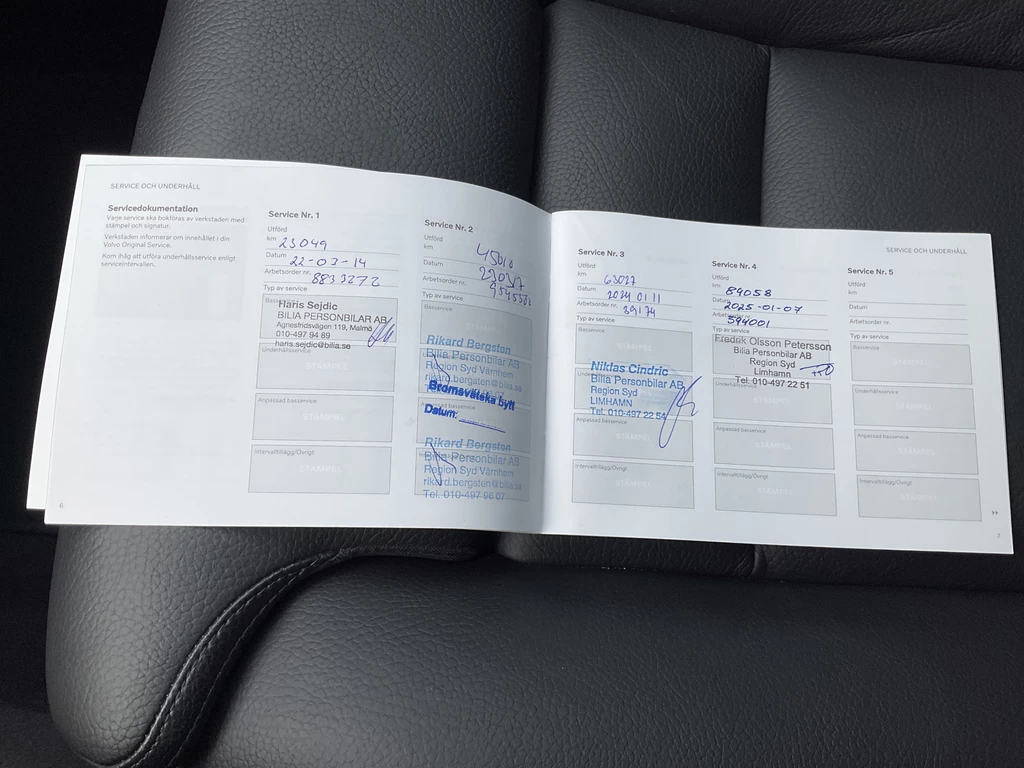 SERVICE OCH UNDERHÅLL
Servicedokumentation
Varje service ska bokföras av verkstaden med
stämpel och signatur.
Verkstaden informerar om innehållet i din
Volvo Original Service.
Kom ihåg att utföra underhållsservice enligt
serviceintervallen.
6
Service Nr. 1
Utförd
km 23049
Datum 22-03-14
Arbetsorder nr. 8833272
Typ av service
Basservice
Haris Sejdic
BILIA PERSONBILAR AB
Agnesfridsvägen 119, Malmö
010-497 94 89
haris.sejdic@bilia.se
Underhållsservice
STÄMPEL
Anpassad basservice
STÄMPEL
Intervalltillägg/Övrigt
STÄMPEL
Service Nr. 2
Utförd
km 45010
Datum
Arbetsorder nr.
Typ av service
Basservice
Rikard Bergsten
Bilia Personbilar AB
Region Syd Värnhem
rikard.bergsten@bilia.se
Bromsvätska bytt
Anpassad basservice
Datum:
Rikard Bergsten
Bilia Personbilar AB
Region Syd Värnhem
rikard.bergsten@bilia.se
Tel. 010-497 96 07
SERVICE OCH UNDERHÅLL
Service Nr. 3
Utförd
km 63027
Datum 2024 01 11
Arbetsorder nr. 39174
Typ av service
Basservice
STÄMPEL
Niklas Cindric
Bilia Personbilar AB
Region Syd
LIMHAMN
Tel. 010-497 22 54
Anpassad basservice
STÄMPEL
Intervalltillägg/Övrigt
STÄMPEL
Service Nr. 4
Utförd
km 89058
Datum 2025-01-07
Arbetsorder nr. 594001
Typ av service
Fredrik Olsson Petersson
Bilia Personbilar AB
Region Syd
Limhamn
Tel. 010-497 22 51
STÄMPEL
Anpassad basservice
STÄMPEL
Intervalltillägg/Övrigt
STÄMPEL
Service Nr. 5
Utförd
km
Datum
Arbetsorder nr.
Typ av service
Basservice
STÄMPEL
Underhållsservice
STÄMPEL
Anpassad basservice
STÄMPEL
Intervalltillägg/Övrigt
STÄMPEL
7